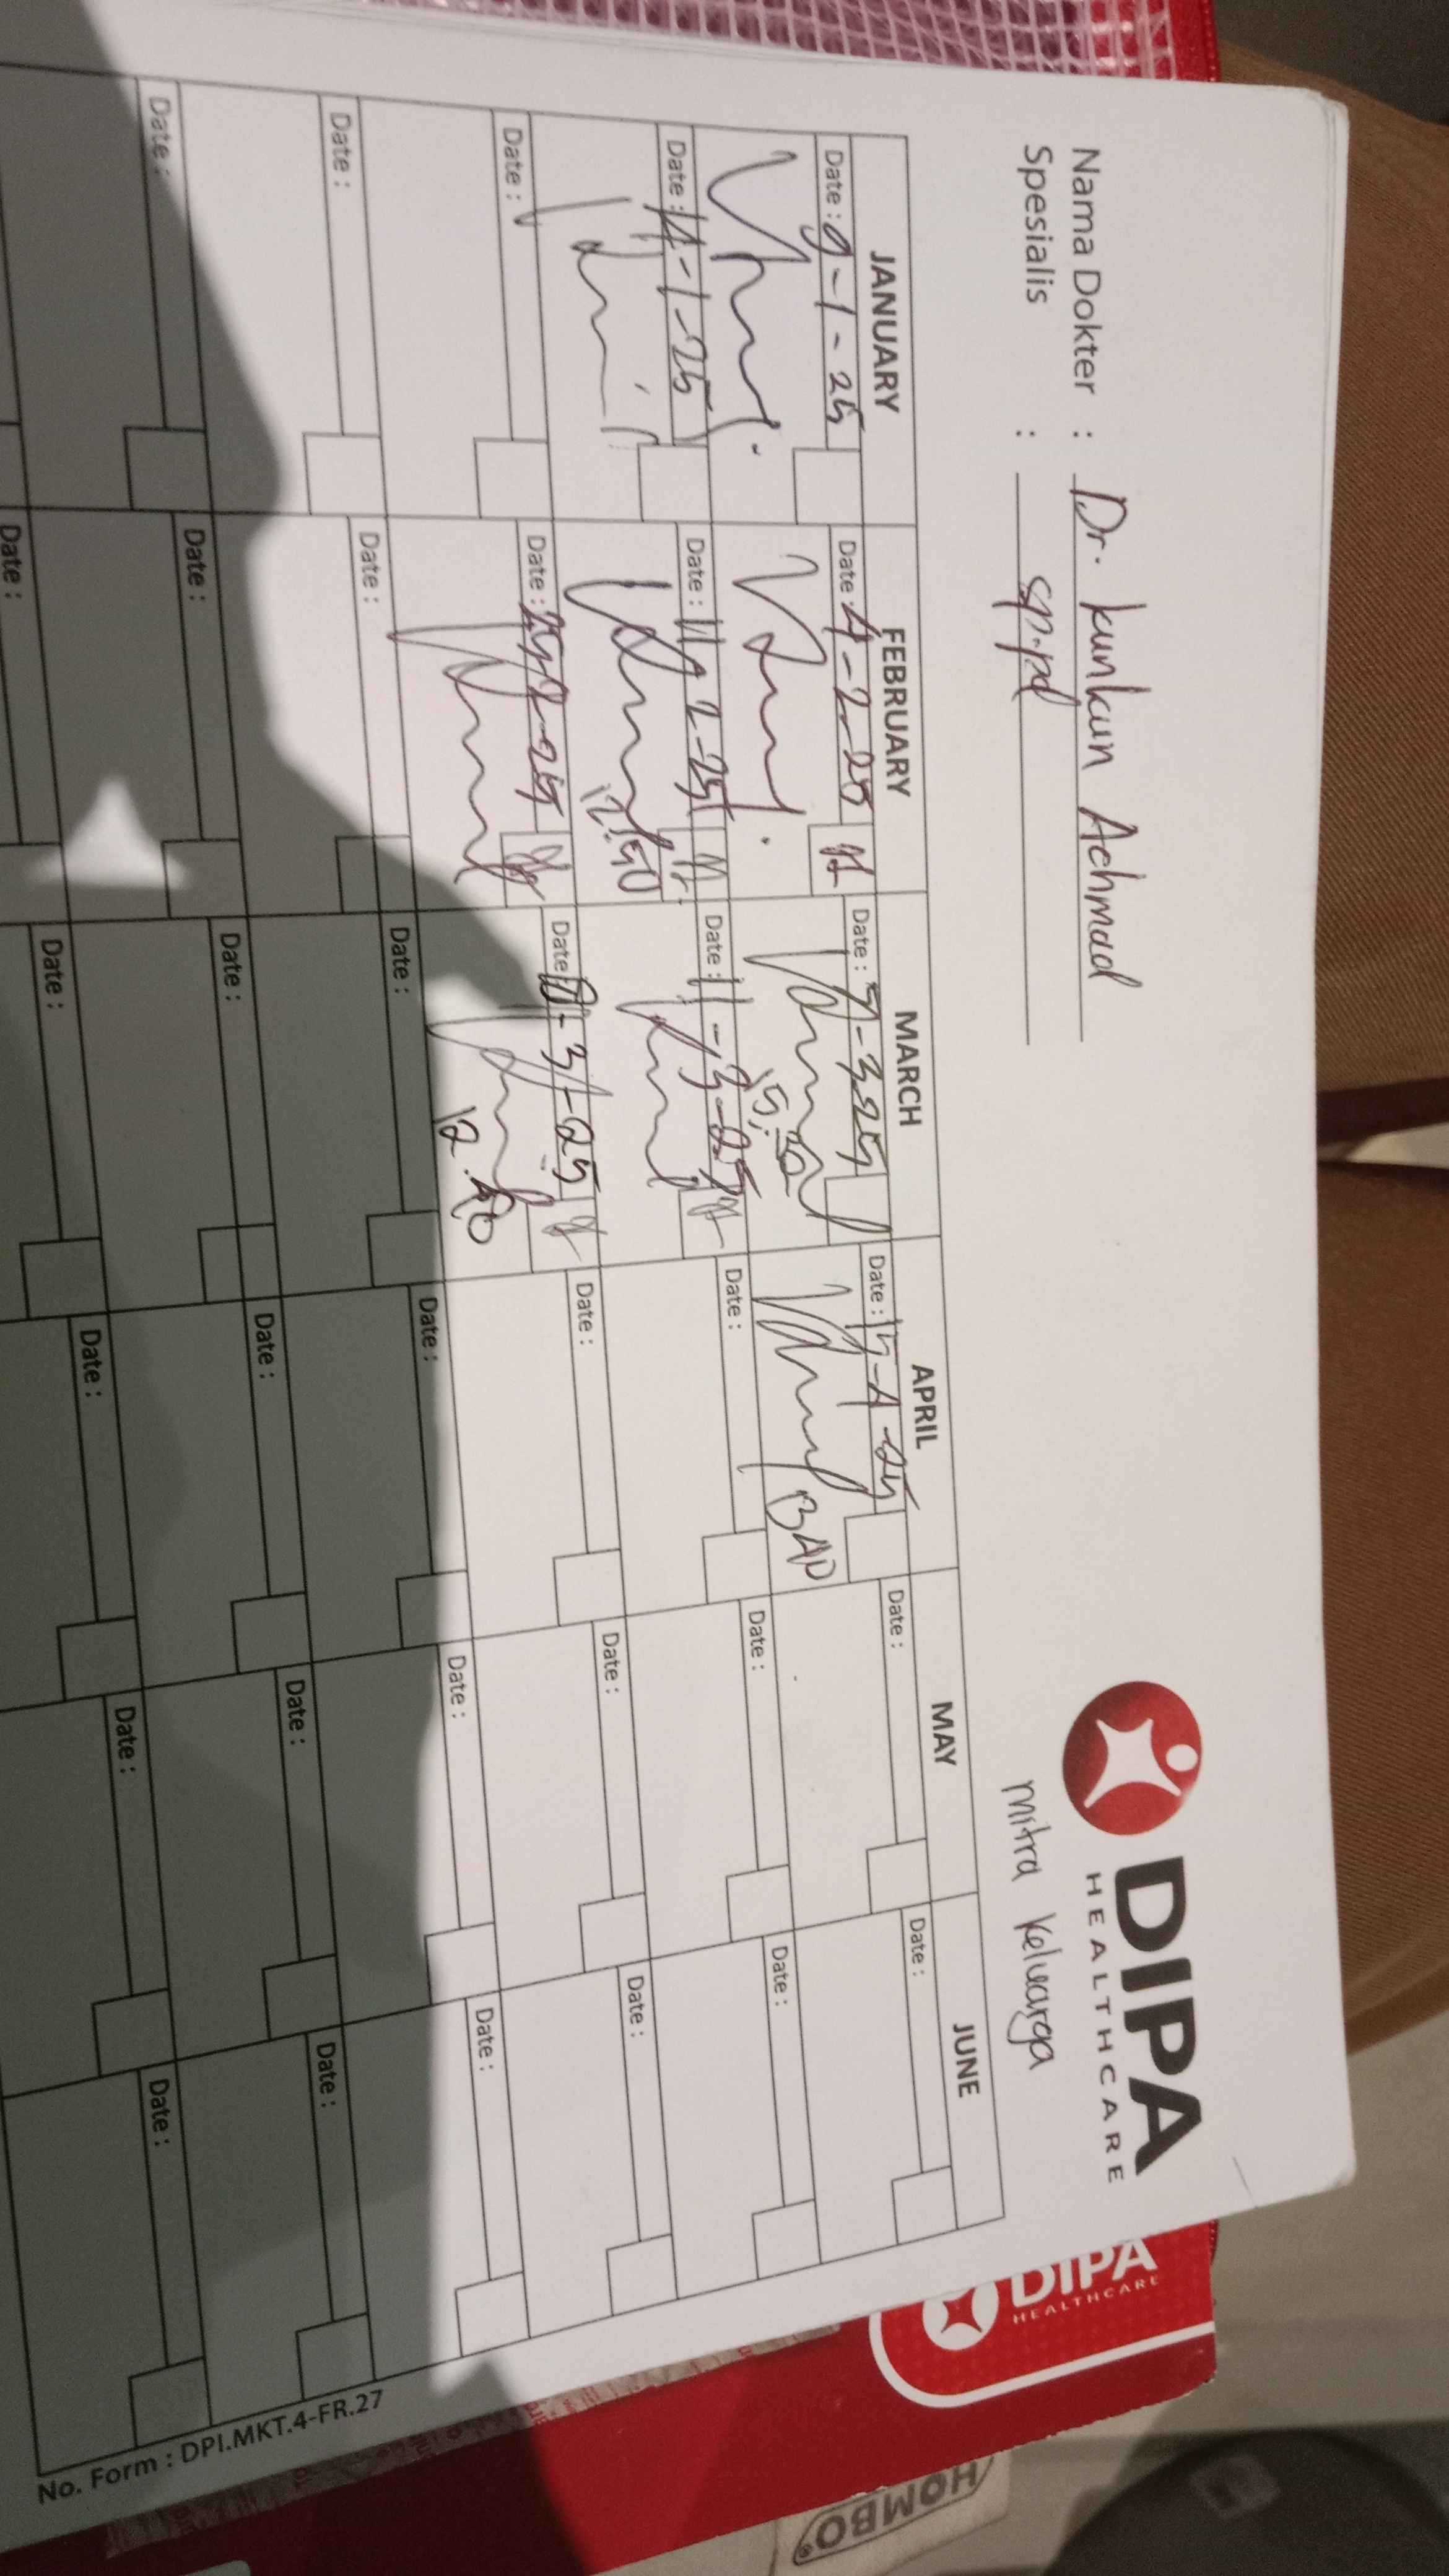 Nama Dokter : Dr. kunkun Achmad
Spesialis : sp.pd
DIPA
HEALTHCARE
mitra keluarga
JANUARY FEBRUARY MARCH APRIL MAY JUNE
Date : 9-1-25 Date : 4-2-25 Date : Date : 15-4-25 Date : Date :
15.30
Date : 14-1-25 Date : 11-2-25 Date : 11-3-25 Date : Date : Date :
12.50
Date : Date : Date : Date : Date :
12.40
Date : Date : Date : Date : Date : Date :
Date : Date : Date : Date : Date : Date :
Date : Date : Date : Date : Date :
No. Form : DPI.MKT.4-FR.27
DIPA
HEALTHCARE
HOMBO